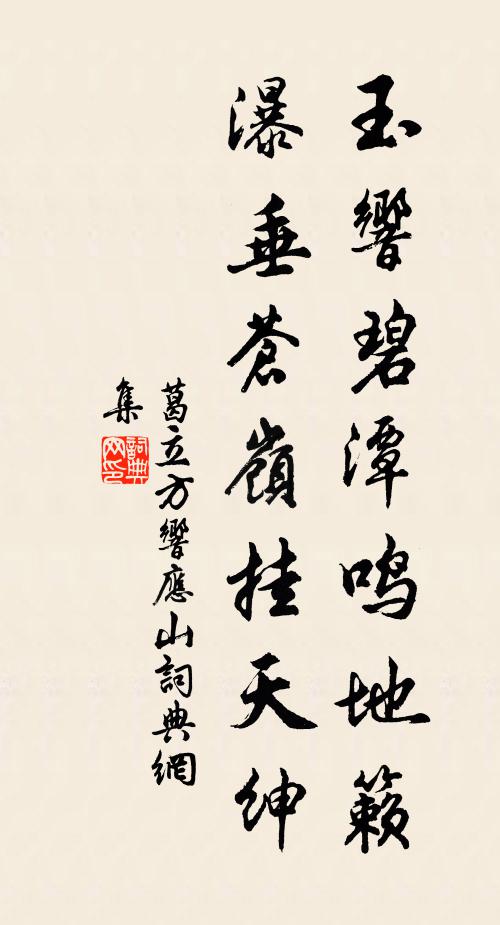 玉響碧潭鳴地籟
瀑垂蒼嶺挂天紳
葛立方響應山詞典網
集
詞典網印